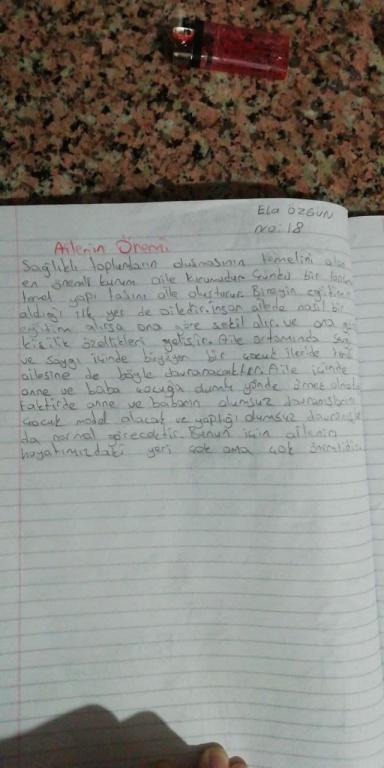 Ela ÖZGÜN
no: 18
Ailenin Önemi
Sağlıklı toplumların oluşmasının temelini atan
en önemli kurum aile kurumudur. Çünkü bir toplumun
temel yapı taşını aile oluşturur. Bireyin eğitimini
aldığı ilk yer de ailedir. insan ailede nasıl bir
eğitim alırsa ona göre şekil alır. ve ona göre
kişilik özellikleri gelişir. Aile ortamında sevgi
ve saygı içinde büyüyen bir çocuk ileride kendi
ailesine de böyle davranacaktır. Aile içinde
anne ve baba çocuğa yönde örnek
taktirde anne ve babanın olumsuz davranışlarını
çocuk model alacak ve yaptığı olumsuz
da normal görecektir. Bunun için ailenin
hayatımızdaki yeri çok ama çok önemlidir.